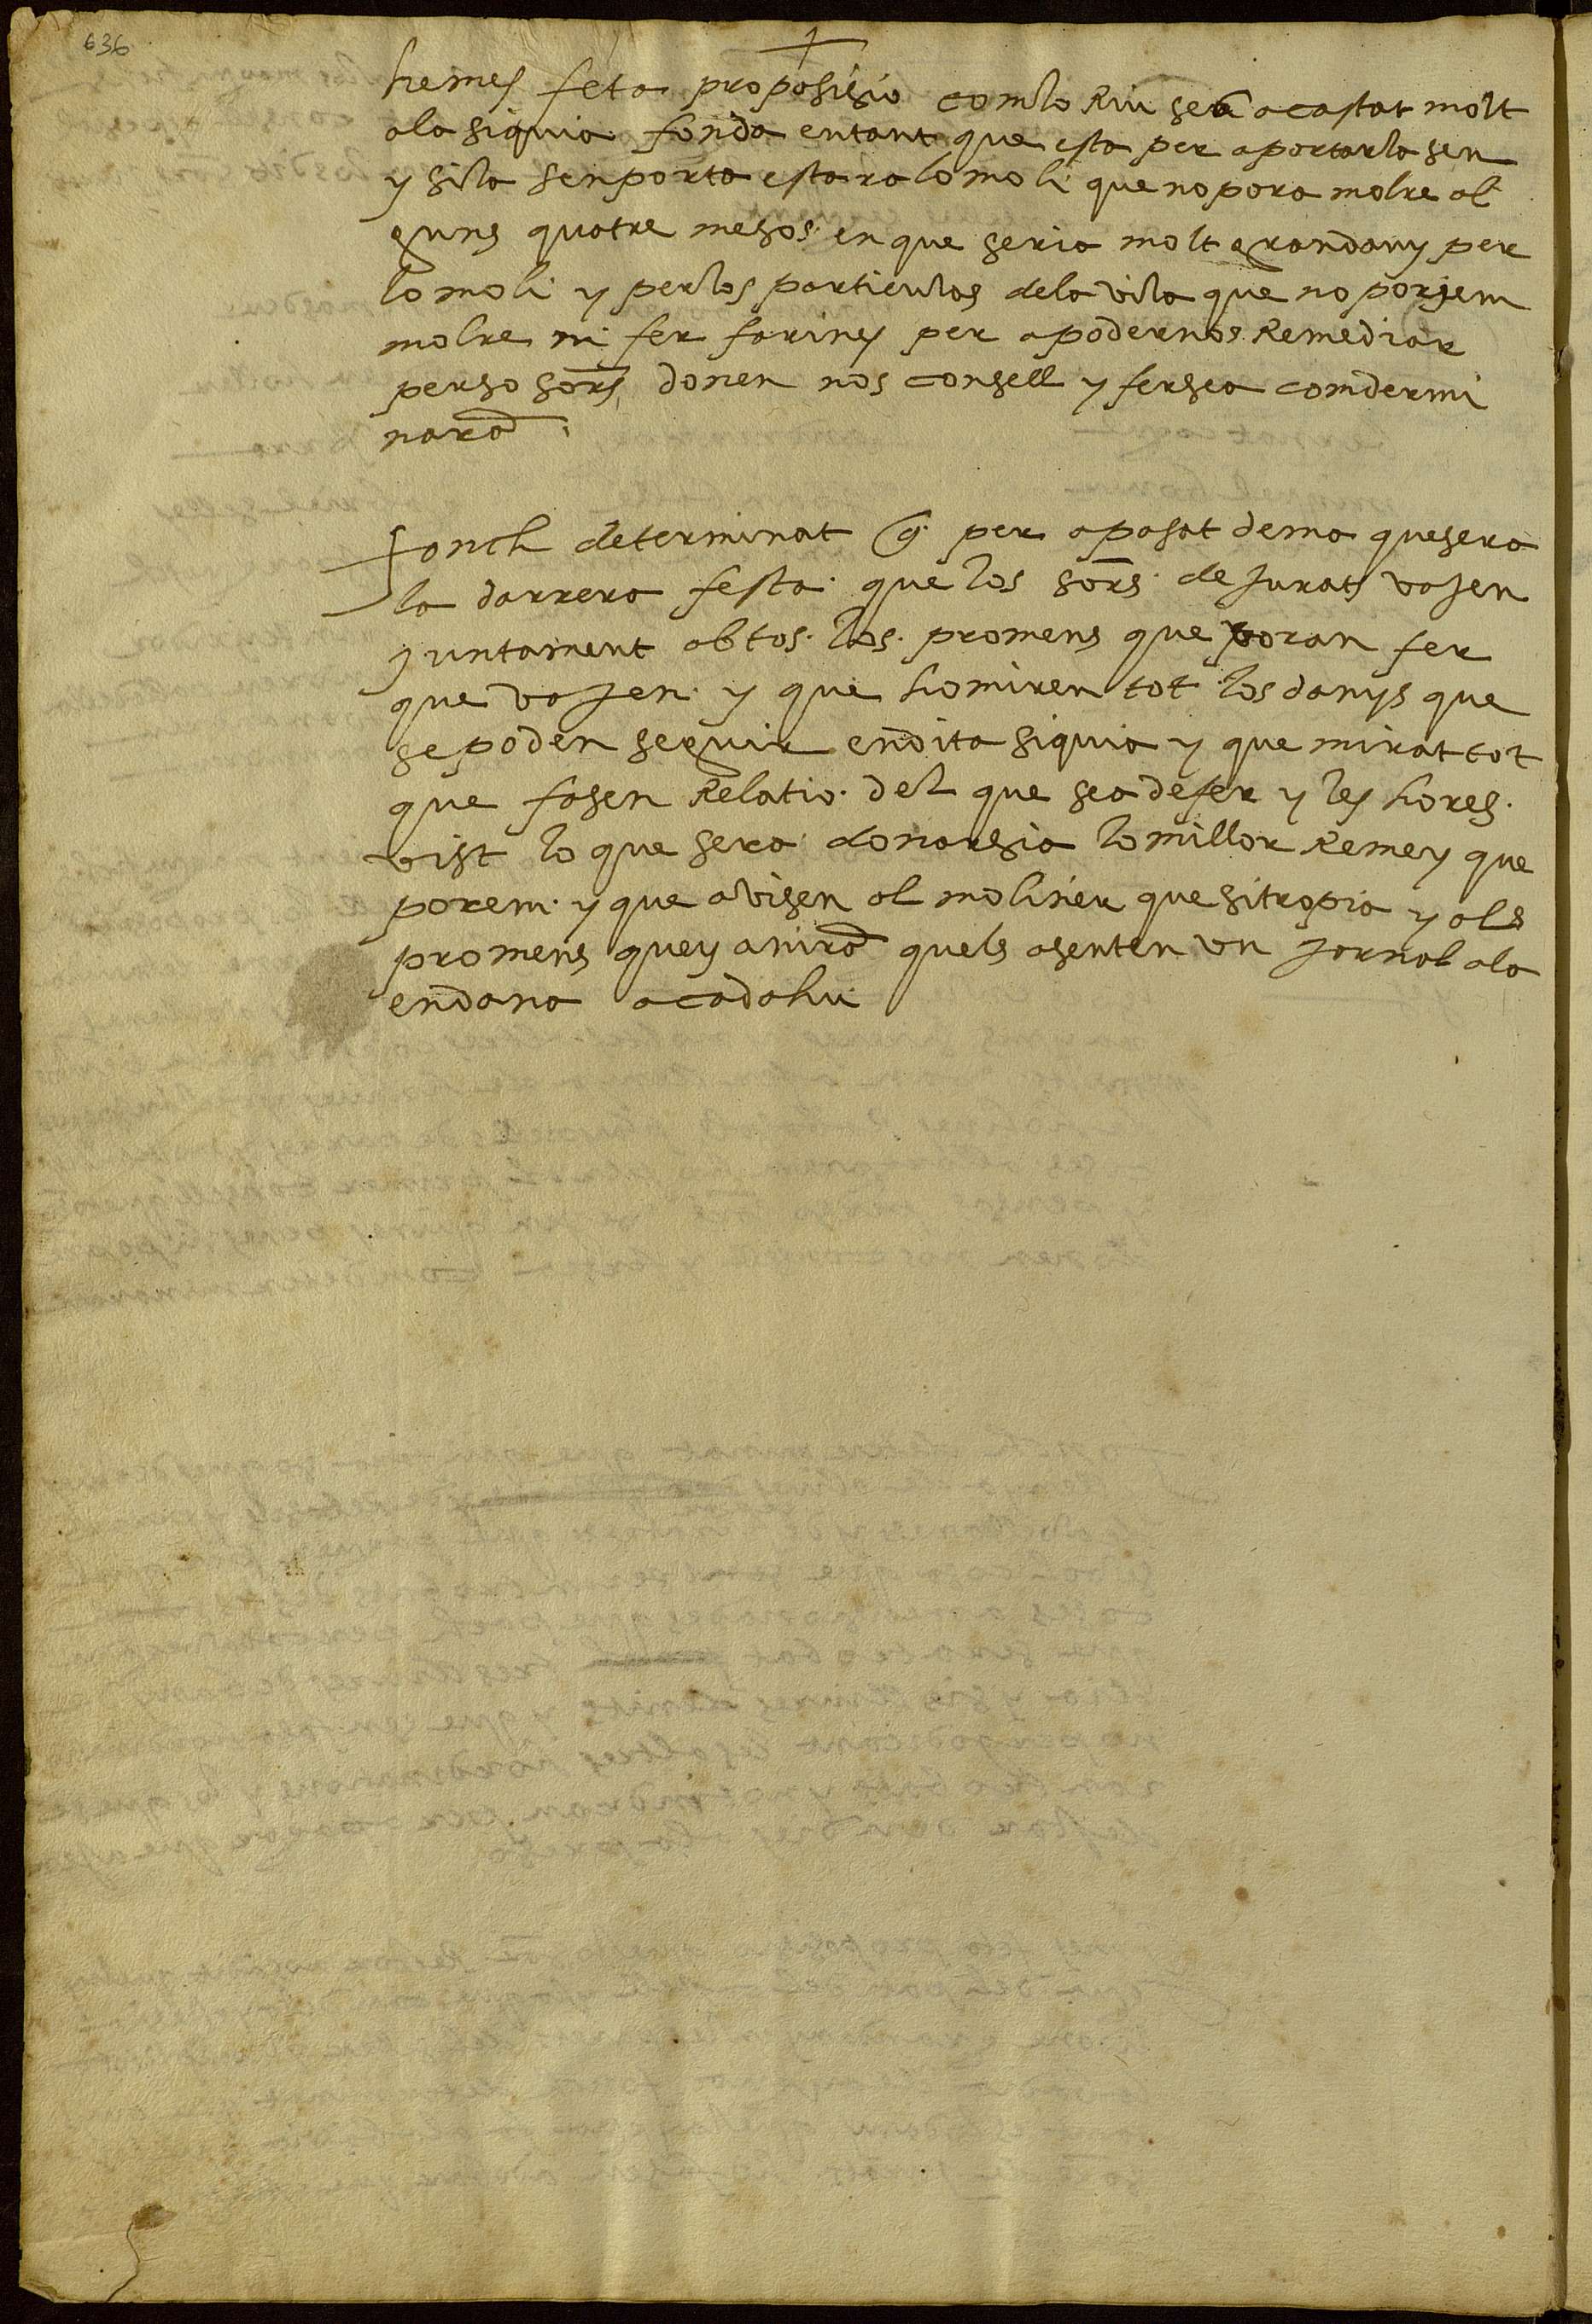 636
hemes feta proposisio com lo Riu sea acastat molt
ala siquia fonda entant que esta per aportarla sen
y sila senporta estara lo moli que no pora molre al
guns quatre mesos en que seria molt gran dany per
lo moli y per los particulas dela vila que no poriem
molre ni fer farines per a podernos Remediar
per so sors donen nos consell y fersea com dermi
nara
fonch determinat q per apasat dema que sera
la darrera festa que los sors de Jurats vajen
Juntament ab tos los promens que poran fer
que vajen y que homiren tot los danys que
se poden seguir en dita siquia y que mirat tot
que fasen Relatio del que sea defer y les hores
vist lo que sera donarsia lo millor Remey que
porem y que avisen al moliner que sitropia y als
promens quey anira quels asenten un jornal ala
endana acadahu